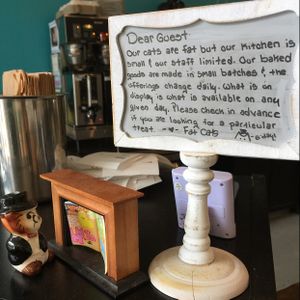 Dear Guest:
Our cats are fat but our kitchen is
small & our staff limited. Our baked
goods are made in small batches &, the
offerings change daily. What is on
display is what is available on any
given day. Please check in advance
if you are looking for a particular
treat. Fat Cats